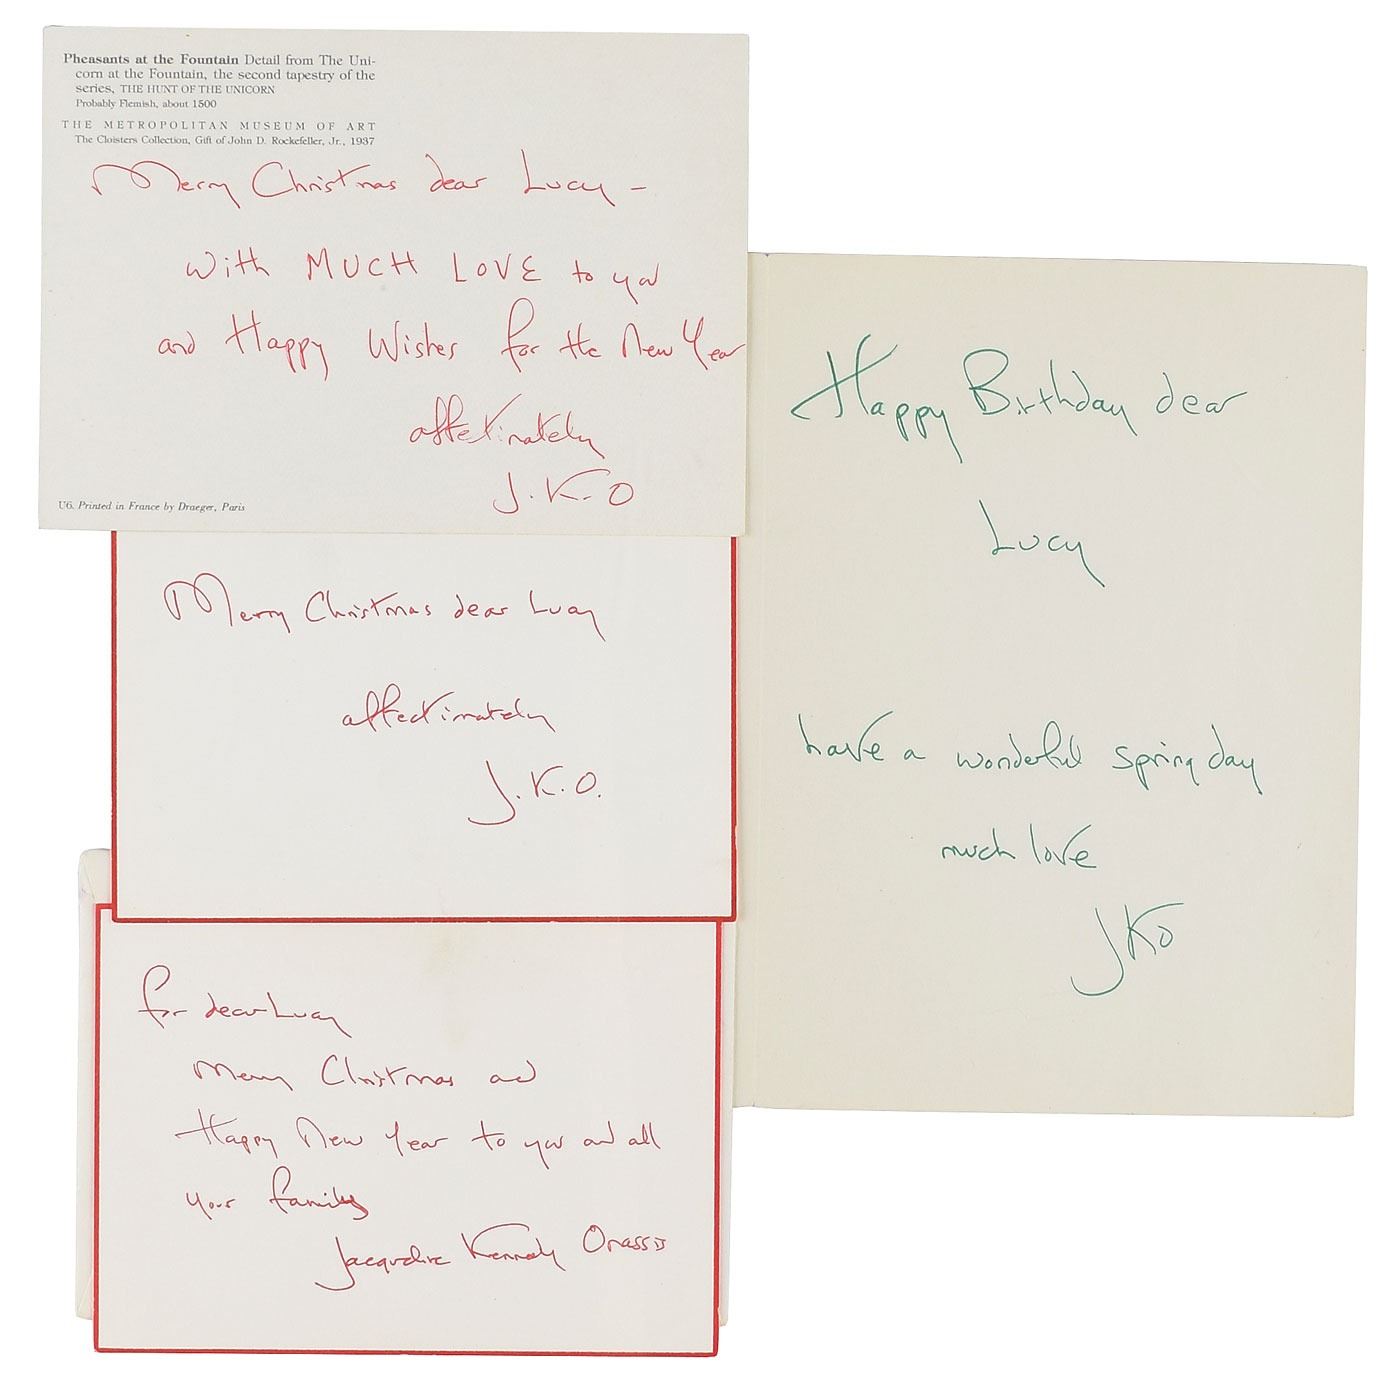 Pheasants at the Fountain Detail from The Uni-
corn at the Fountain, the second tapestry of the
series, THE HUNT OF THE UNICORN
Probably Flemish, about 1500
THE METROPOLITAN MUSEUM OF ART
The Cloisters Collection, Gift of John D. Rockefeller, Jr., 1937
Merry Christmas dear Lucy –
with MUCH LOVE to you
and Happy Wishes for the New Year
affectionately
J.K.O
U6. Printed in France by Draeger, Paris
Merry Christmas dear Lucy
affectionately
J.K.O.
for dear Lucy
Merry Christmas and
Happy New Year to you and all
your family
Jacqueline Kennedy Onassis
Happy Birthday dear
Lucy
have a wonderful spring day
much love
JKO